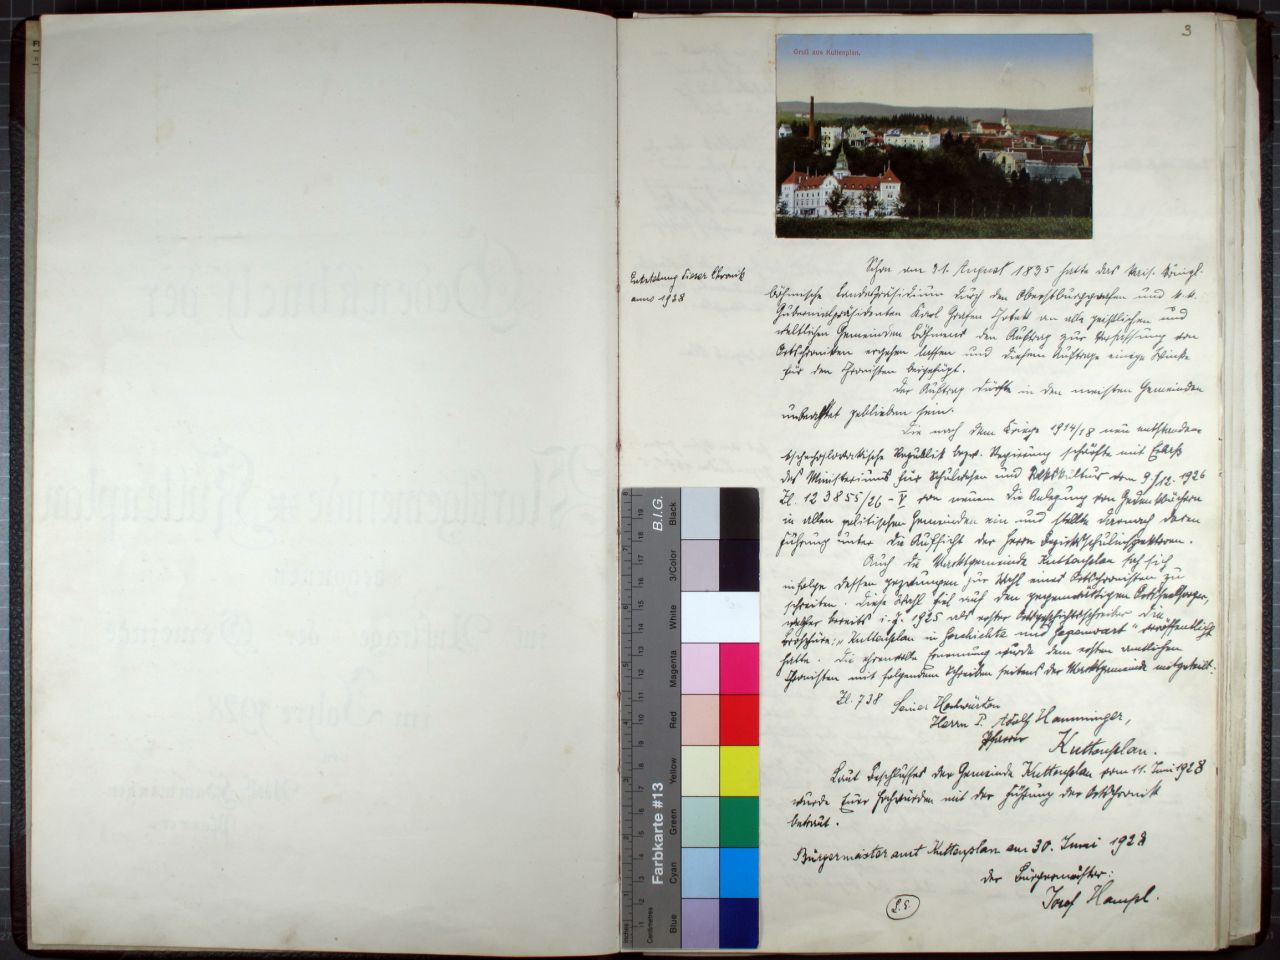 3
Gruß aus Kuttenplan.
Entstehung dieser Chronik
anno 1928
Schon am 31. August 1835 hatte das kais. königl.
böhmische Landespräsidium durch den Oberstburggrafen und k.k.
Gubernialpräsidenten Karl Grafen Chotek an alle geistlichen und
weltlichen Gemeinden Böhmens den Auftrag zur Verfassung von
Ortschroniken ergehen lassen und diesem Auftrage einige Winke
für den Chronisten beigefügt.
Der Auftrag dürfte in den meisten Gemeinden
unbeachtet geblieben sein.
Die nach dem Kriege 1914/18 neu entstandene
tschechoslovakische Republik bezw. Regierung schärfte mit Erlaß
des Ministeriums für Schulwesen und Volkskultur vom 9./12. 1926
Zl. 123855/26-V von neuem die Anlegung von Gedenkbüchern
in allen politischen Gemeinden ein und stellte darnach deren
Führung unter die Aufsicht der Herrn Bezirksschulinspektoren.
Auch die Marktgemeinde Kuttenplan sah sich
infolge dessen gezwungen zur Wahl eines Ortschronisten zu
schreiten. Diese Wahl fiel auf den gegenwärtigen Ortsseelsorger,
welcher bereits i. J. 1925 als erster Ortsgeschichtsschreiber die
Broschüre: „Kuttenplan in Geschichte und Gegenwart" veröffentlicht
hatte. Die ehrenvolle Ernennung wurde dem ersten amtlichen
Chronisten mit folgendem Schreiben seitens der Marktgemeinde mitgeteilt:
Zl. 738 Seiner Hochwürden
Herrn P. Adolf Hamminger,
Pfarrer
Kuttenplan.
Laut Beschlusses der Gemeinde Kuttenplan vom 11. Juni 1928
wurde Euer Hochwürden mit der Führung der Ortschronik
betraut.
Bürgermeisteramt Kuttenplan am 30. Juni 1928
der Bürgermeister:
Josef Hampl.
L.S.
B.I.G.
Farbkarte #13
Black
3/Color
White
Magenta
Red
Yellow
Green
Cyan
Blue
Centimetres
Inches